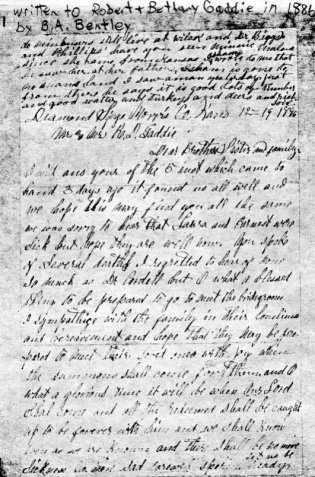 written to Robert & Bethany Gaddie in 1886
1 by B.A. Bentley
to still live at and Dr Biggs
and Phillips have you seen Minnie
since she came from Kansas wrote to me that
he saw her at her father's is gone to
no mans land I saw a man yesterday just
from there he says it is good lots of timber
and good water and turkeys and deers and rich
soil
Diamond Spgs Morris Co. Kans 12-19 1886
Mr & Mrs R. Gaddie
Dear Brother Sister and family
I will ans your of the 5 inst which came to
hand 3 days ago it found us all well and
we hope this may find you all the same
we was sorry to hear that Laura and Earnest were
sick but hope they are well now. You spoke
of several deaths I regretted to hear of none
so much as Dr but O what a blessed
thing to be prepared to go to meet the bridegroom
I sympathise with the family in their loneliness
and bereavement and hope that they may be pre
pared to meet their loved ones with joy when
the summons shall come for them and O
what a glorious time it will be when our Lord
shal come and all the redeemed shall be caught
up to be forever with him and we shall know
even as we are known and there shall be no more
sickness no more sad farewels let us be
ready